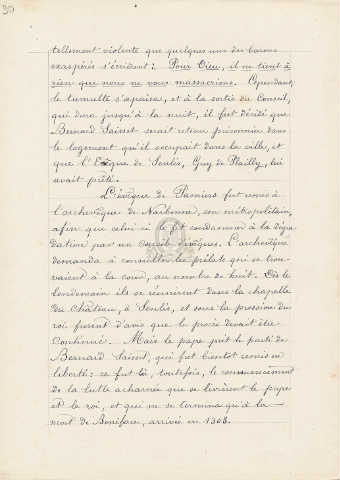 30
tellement violente que quelques uns des barons
exaspérés s'écrièrent : Pour Dieu, il ne tient à
rien que nous ne vous massacrions. Cependant,
le tumulte s'apaisa, et à la sortie du Conseil,
qui dura jusqu'à la nuit, il fut décidé que
Bernard Saisset serait retenu prisonnier dans
le logement qu'il occupait dans la ville, et
que l'Evêque de Senlis, Guy de Plailly, lui
avait prêté.
L'évêque de Pamiers fut remis à
l'archevêque de Narbonne, son métropolitain,
afin que celui-ci le fit condamner à la dégra
dation par un conseil d'évêques. L'archevêque
demanda à consulter les prélats qui se trou
vaient à la cour, au nombre de huit. Dès le
lendemain ils se réunirent dans la chapelle
du Château, à Senlis, et sous la pression du
roi furent d'avis que le procès devait être
continué. Mais le pape prit le parti de
Bernard Saisset, qui fut bientôt remis en
liberté : ce fut là, toutefois, le commencement
de la lutte acharnée que se livrèrent le pape
et le roi, et qui ne se termina qu'à la
mort de Boniface, arrivée en 1303.